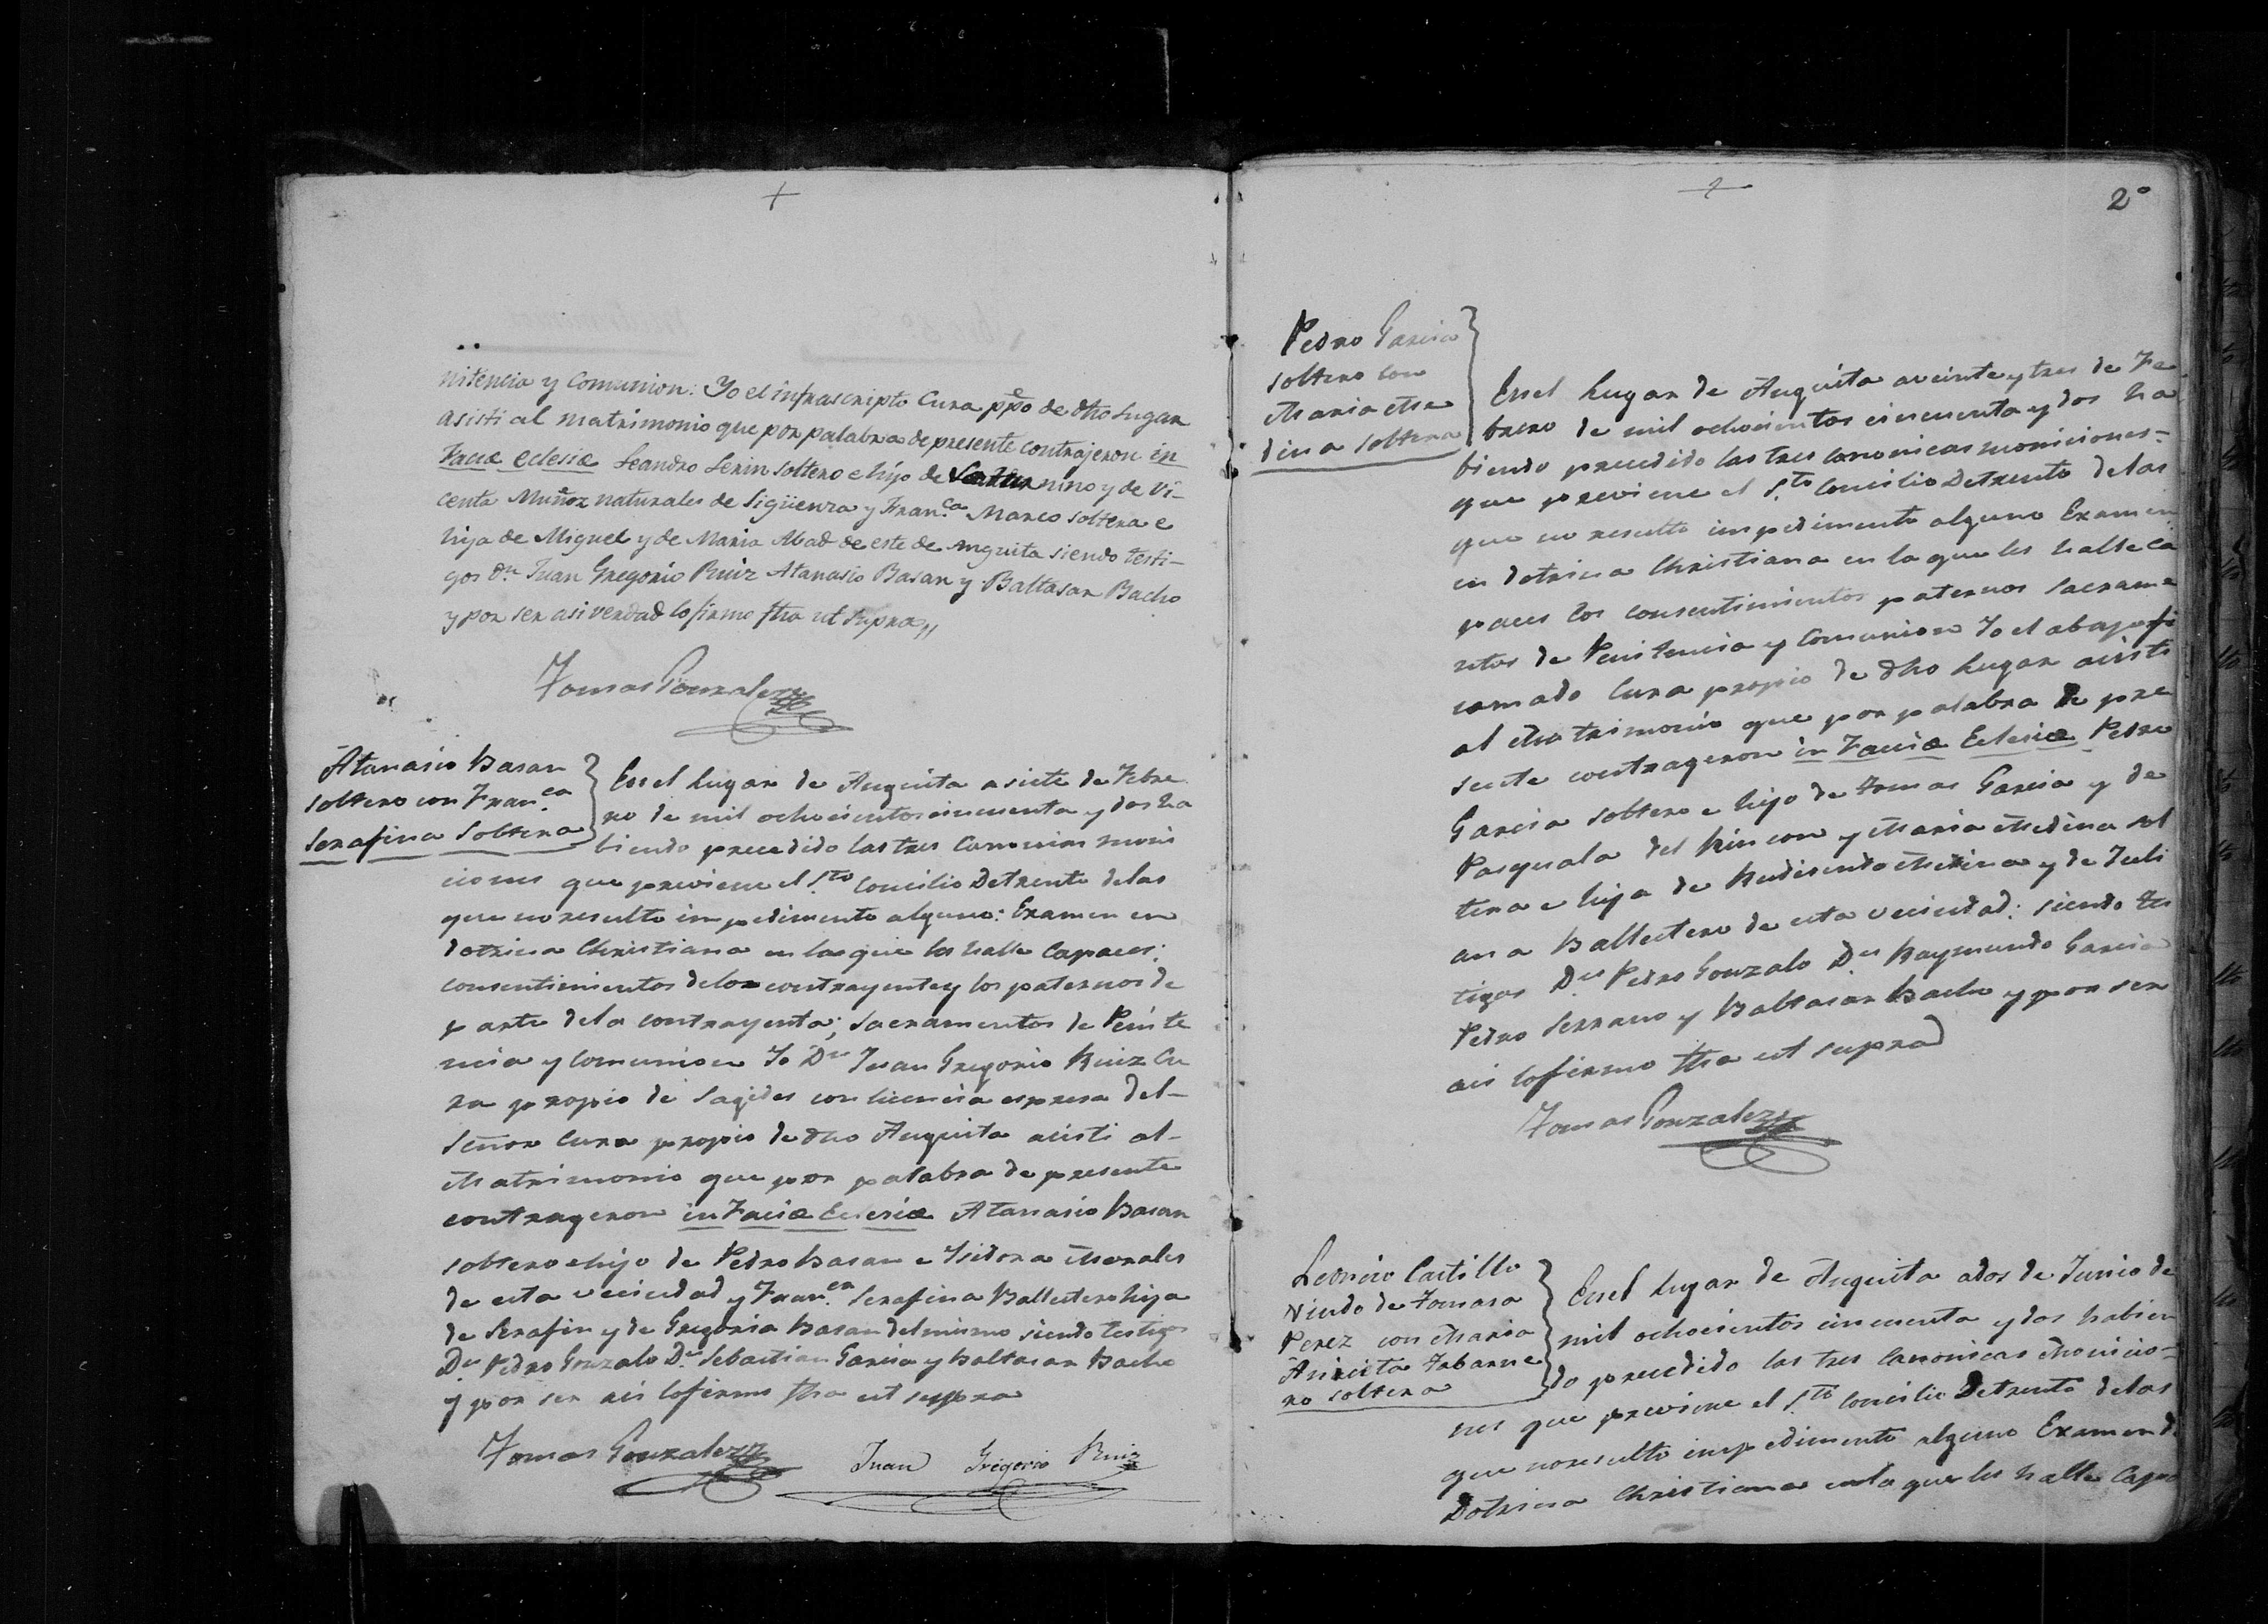 nitencia y Comunion: Yo el infrascripto Cura ppo de dho Lugar
asisti al matrimonio que por palabra de presente contrajeron in
Faciæ eclesiæ Leandro Lerin soltero e hijo de Saturnino y de Vi-
centa Muñoz naturales de Sigüenza y Fran.ca Marco soltera e
hija de Miguel y de Maria Abad de este de Anguita siendo testi-
gos Dn Juan Gregorio Ruiz Atanasio Basan y Baltasar Bacho
y por ser asi verdad lo firmo fha ut supra,,
Tomas Gonzalez
Atanasio Basan
soltero con Fran.ca
Serafina Soltera
En el lugar de Anguita a siete de Febre
ro de mil ochocientos cincuenta y dos ha
biendo precedido las tres Canonicas moni
ciones que previene el S.to Concilio Detrento delas
que no resulto impedimento alguno: Examen en
dotrina Christiana en las que los halle Capaces:
consentimientos delos contrayentes y los paternos de
parte dela contrayenta; sacramentos de Penite
ncia y Comunion Yo Dn Juan Gregorio Ruiz Cu
ra propio de Sagides con licencia espresa del-
Señor Cura propio de dho Anguita asisti al-
Matrimonio que por palabra de presente
contrageron in Faciæ Eclesiæ Atanasio Basan
soltero e hijo de Pedro Basan e Ysidora Morales
de esta vecindad y Fran.ca Serafina Ballestero hija
de Serafin y de Gregoria Basan del mismo siendo testigos
Dn Pedro Gonzalo Dn Sebastian Garcia y Baltasar Bacho
y por ser asi lo firmo fha ut supra
Tomas Gonzalez Juan Gregorio Ruiz
2º
Pedro Garcia
soltero con
Maria Me
dina soltera
En el lugar de Anguita a veinte y tres de Fe
brero de mil ochocientos cincuenta y dos ha
biendo precedido las tres canonicas moniciones-
que previene el S.to Concilio Detrento delas
que no resulto impedimento alguno Examen
en dotrina Christiana en la que les halle ca
paces los consentimientos paternos Sacrame
ntos de Penitencia y Comunion Yo el abajo fi
rmado Cura propio de dho lugar asisti
al Matrimonio que por palabra de pre
sente contrageron in Faciæ Eclesiæ Pedro
Garcia soltero e hijo de Tomas Garcia y de
Pasquala del Rincon y Maria Medina sol
tera e hija de Rudisendo Medina y de Juli
ana Ballestero de esta vecindad: siendo tes
tigos Dn Pedro Gonzalo Dn Raymundo Garcia
Pedro Serrano y Baltasar Bacho y por ser
asi lo firmo fha ut supra
Tomas Gonzalez
Leoncio Castillo
Viudo de Tomasa
Perez con Maria
Aniceta Tabarne
ro soltera
En el lugar de Anguita a dos de Junio de
mil ochocientos cincuenta y dos habien
do precedido las tres Canonicas Monicio-
nes que previene el S.to Concilio Detrento delas
que no resulto impedimento alguno Examen de
Dotrina Christiana en la que les halle Capa